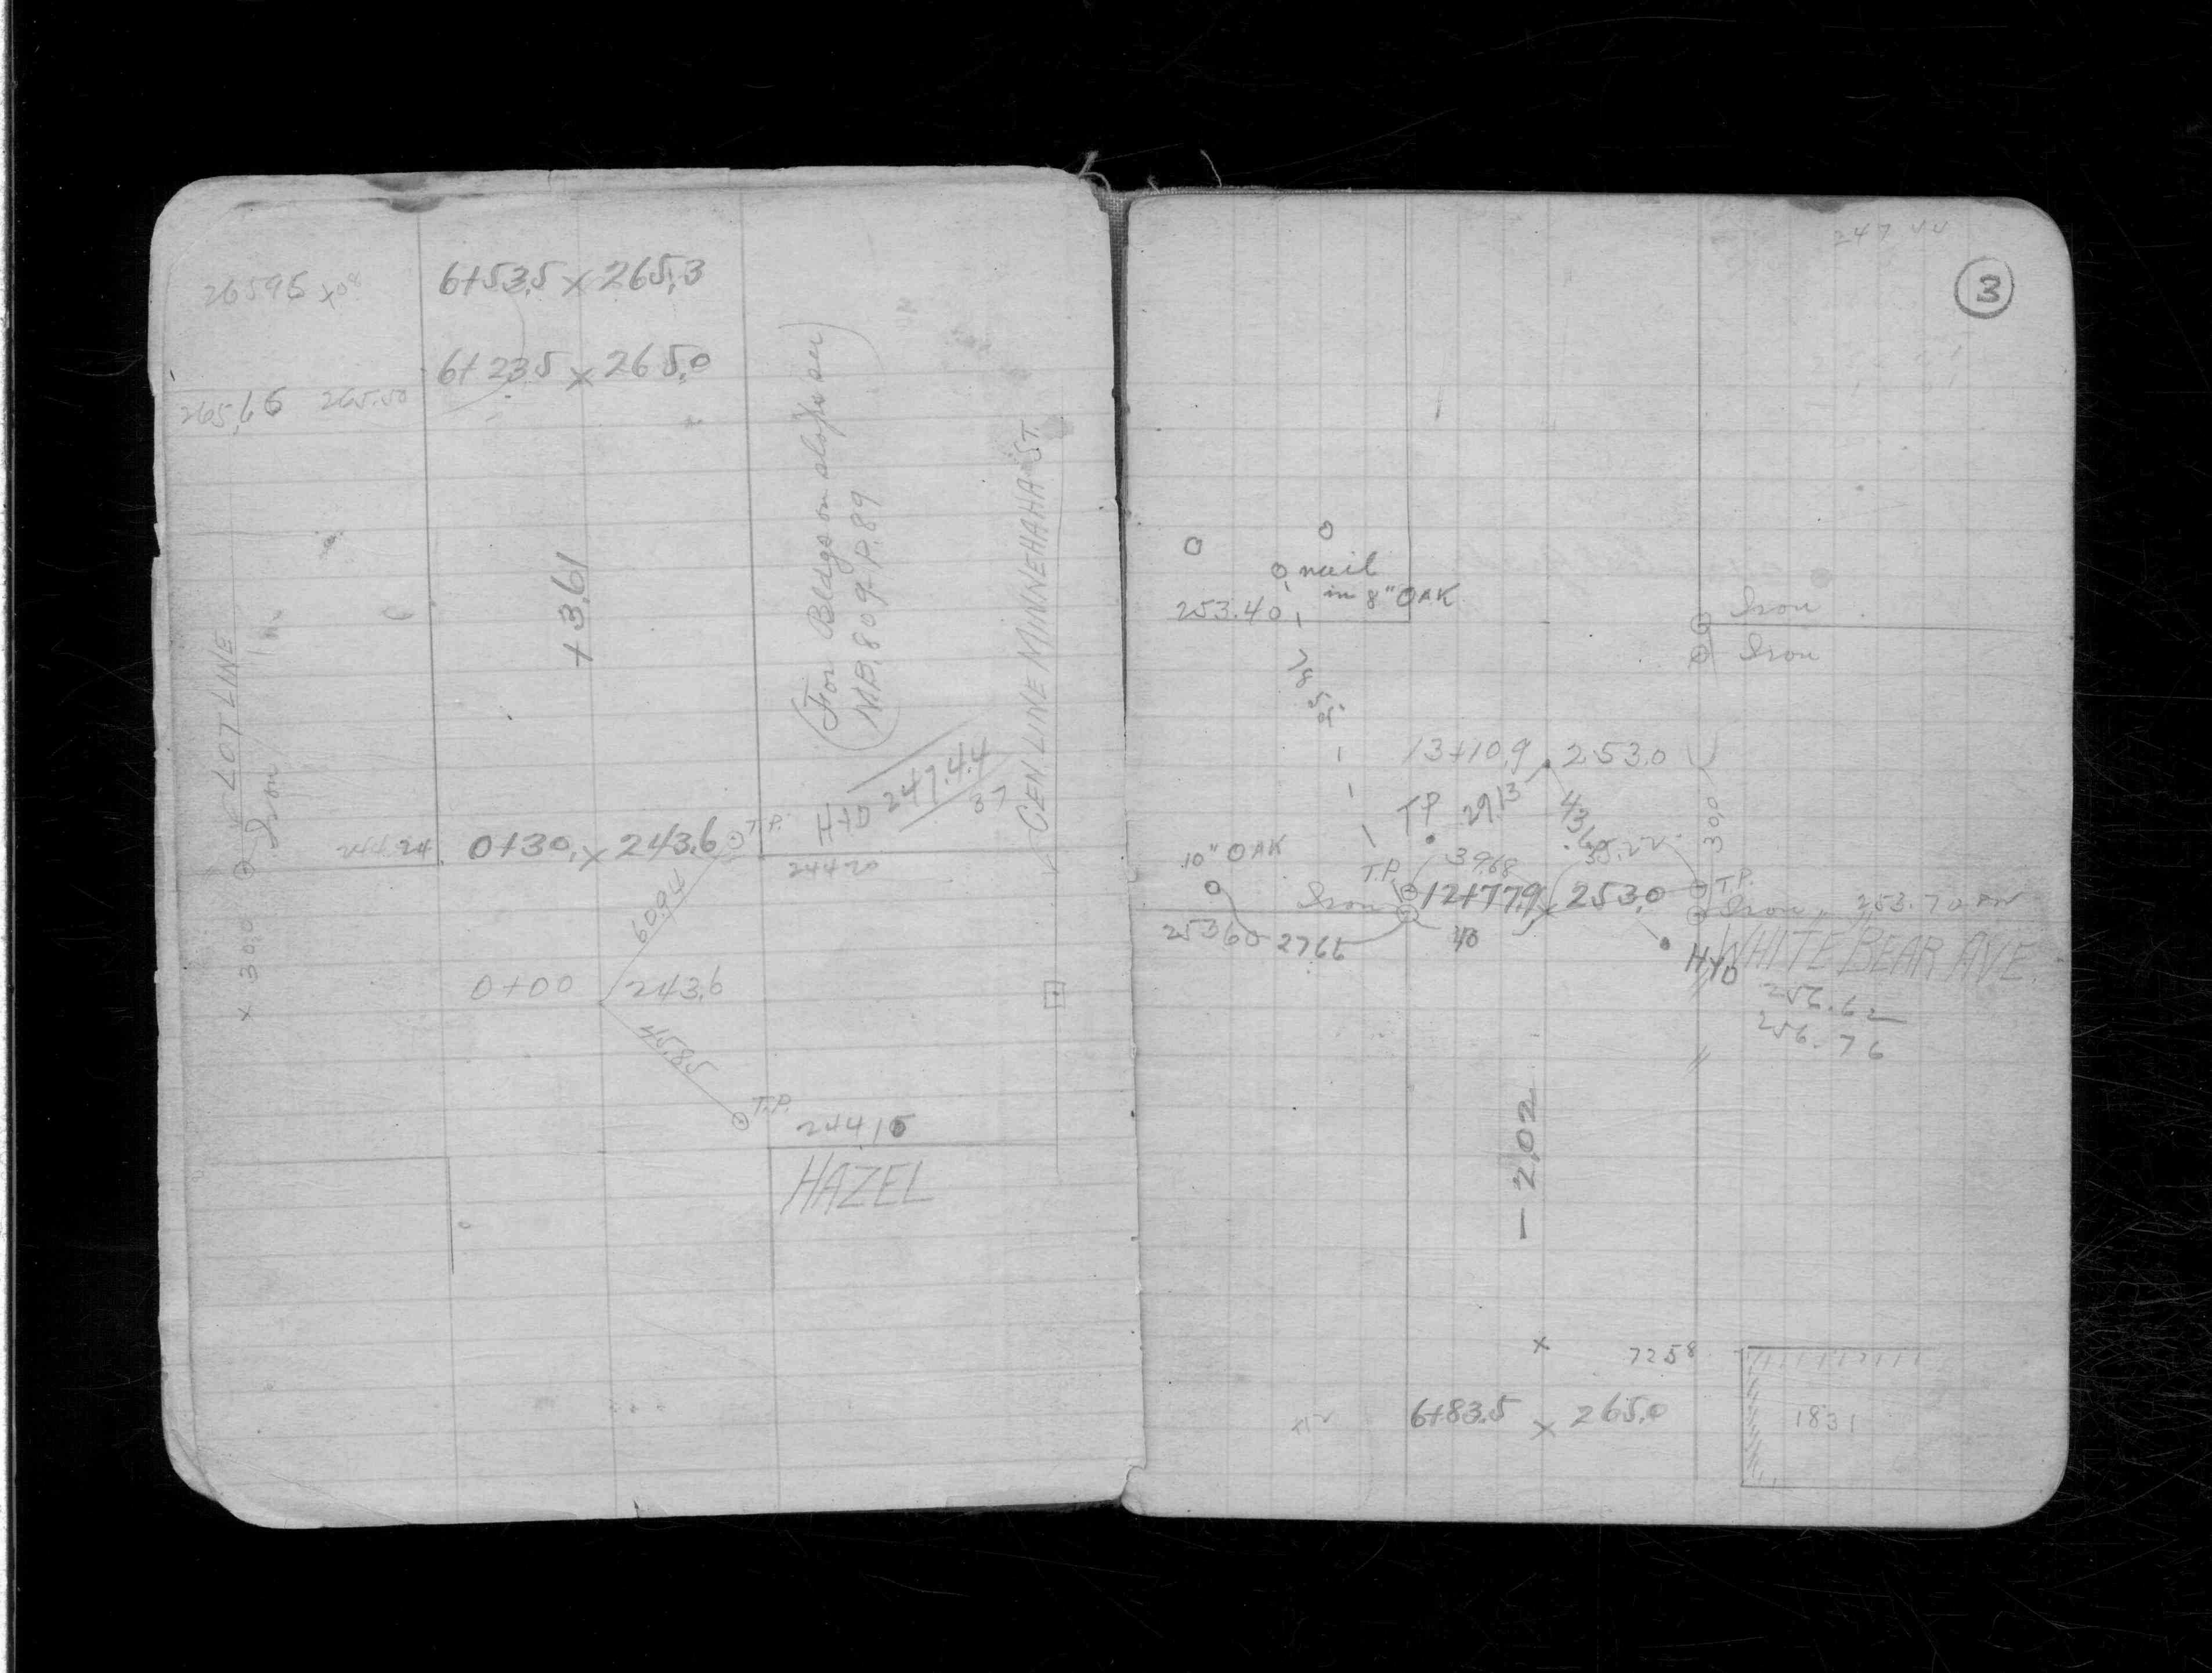 6+53.5 x 265.3
6+23.5 x 265.0
265.16 265.50
+3.61
(For Bldgs on slope see)
(MB. 809 P. 89)
CEN LINE MINNEHAHA ST.
LOT LINE
Iron
x 30.0
HYD 247.44
37
0+30. x 243.6 T.P.
244.20
60.94
0+00 243.6
45.85
T.P.
244.15
HAZEL
3
nail
in 8" OAK
253.40
Iron
Iron
13+10.9 253.0
TP 29.13
30.0
10" OAK
T.P. 39.68 35.22
12+77.9 x 253.0 T.P.
Iron
Iron 253.70
253.60 27.65 40
HYD
WHITE BEAR AVE.
256.62
256.76
-2.02
x 72.58
6+83.5 x 265.0
1831